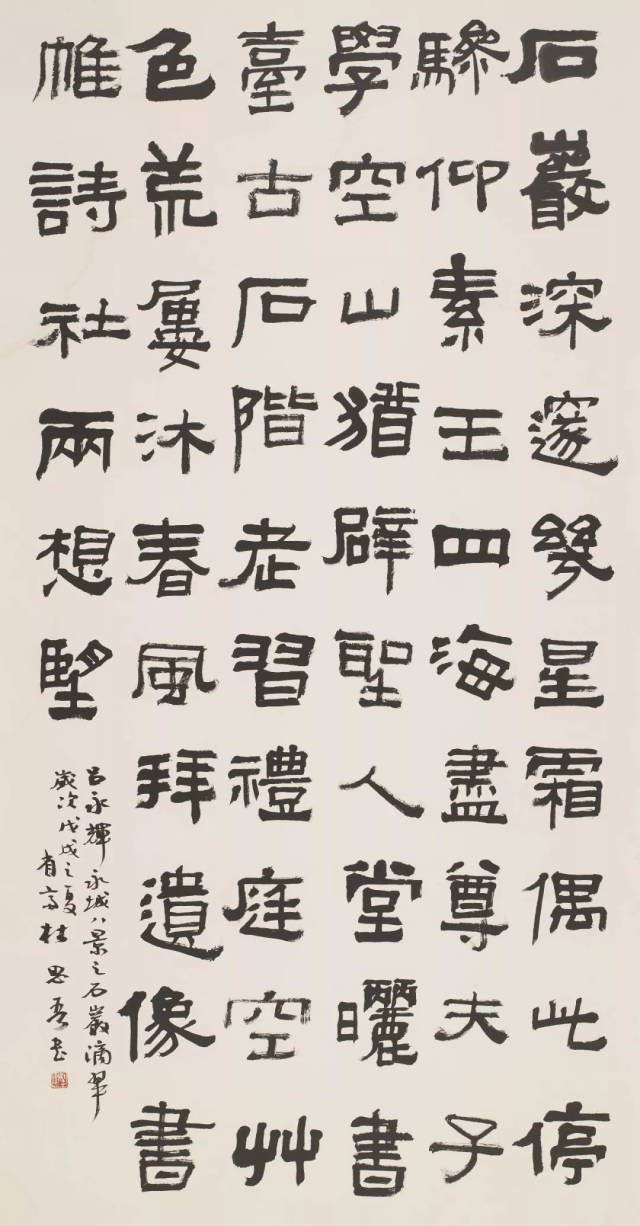 石巖深邃幾星霜偶此停
驂仰素王四海盡尊夫子
學空山猶辟聖人堂曬書
臺古石階老習禮庭空艸
色荒屢沐春風拜遺像書
帷詩社兩想望
呂永輝永城八景之石巖滴翠
歲次戊戌之夏
杜思吾書